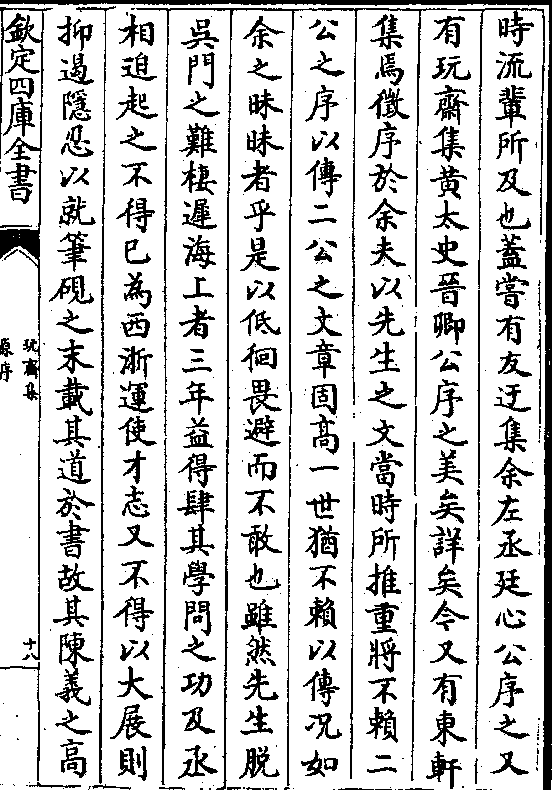 時流輩所及也蓋嘗有友迂集余左丞廷心公序之又
有玩齋集黄太史晉卿公序之美矣詳矣今又有東軒
集焉徵序於余夫以先生之文當時所推重將不賴二
公之序以傳二公之文章固髙一世猶不賴以傳况如
余之昧昧者乎是以低徊畏避而不敢也雖然先生脱
吳門之難棲遲海上者三年益得肆其學問之功及丞
相迫起之不得已為西浙運使才志又不得以大展則
抑遏隱忍以就筆硯之末載其道於書故其陳義之髙
欽定四庫全書
玩齋集
原序
十八